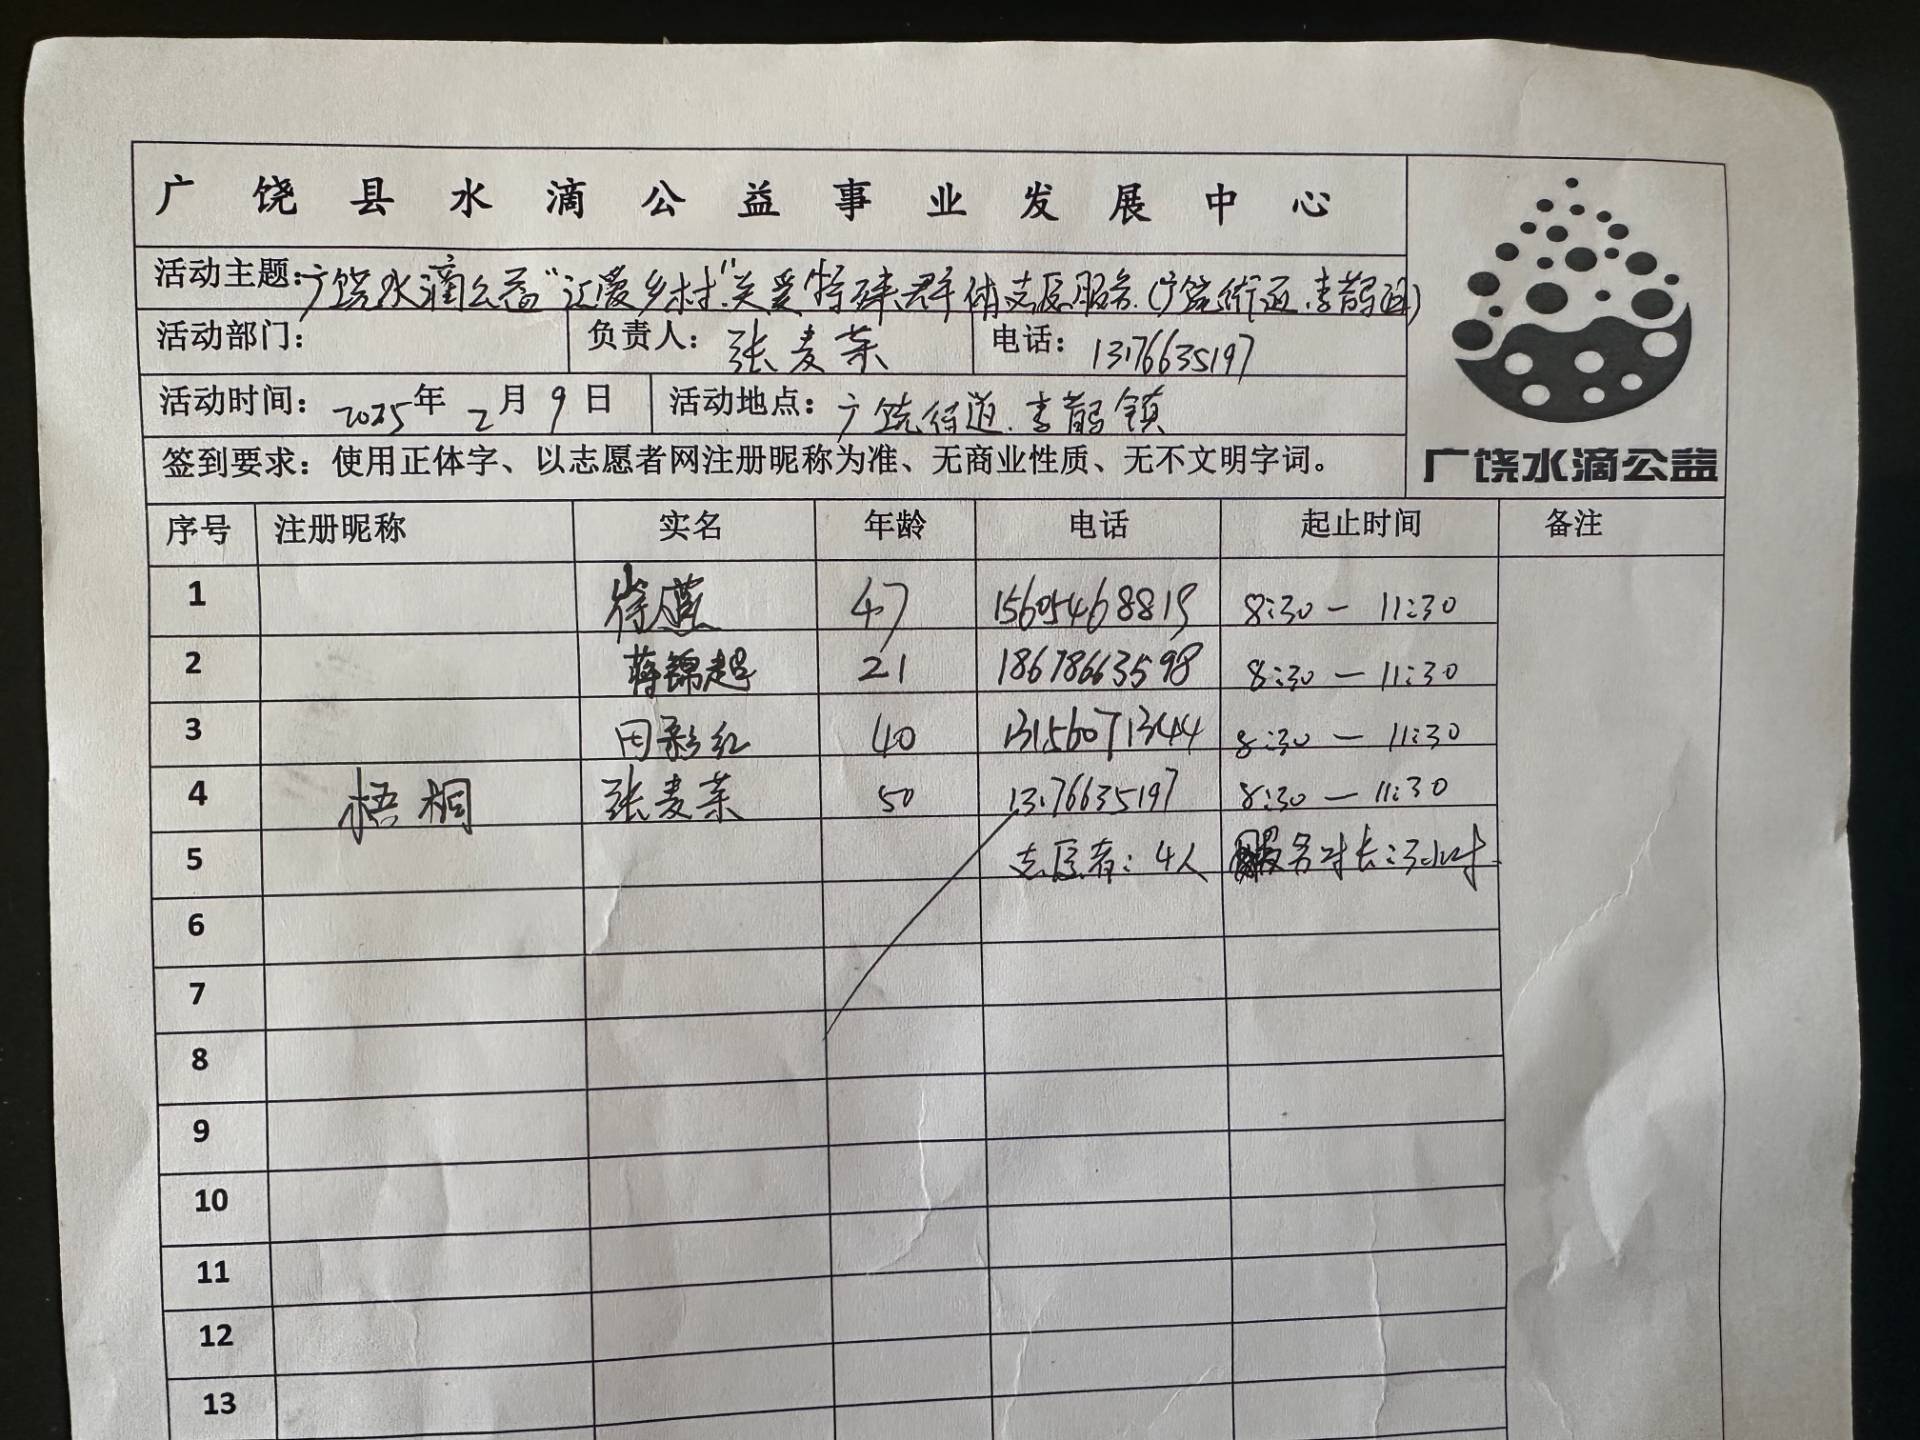 广饶县水滴公益事业发展中心
活动主题：广饶水滴公益“让爱乡村”关爱特殊群体志愿服务（广饶街道.李鹊镇）
活动部门： 负责人：张麦荣 电话：13176635197
活动时间：2025年2月9日 活动地点：广饶街道.李鹊镇
签到要求：使用正体字、以志愿者网注册昵称为准、无商业性质、无不文明字词。
广饶水滴公益
序号 注册昵称 实名 年龄 电话 起止时间 备注
1 47 15605468819 8:30－11:30
2 蒋锦超 21 18678663598 8:30－11:30
3 田彩红 40 13156071344 8:30－11:30
4 梧桐 张麦荣 50 13176635197 8:30－11:30
5 志愿者：4人 服务时长：3小时
6
7
8
9
10
11
12
13